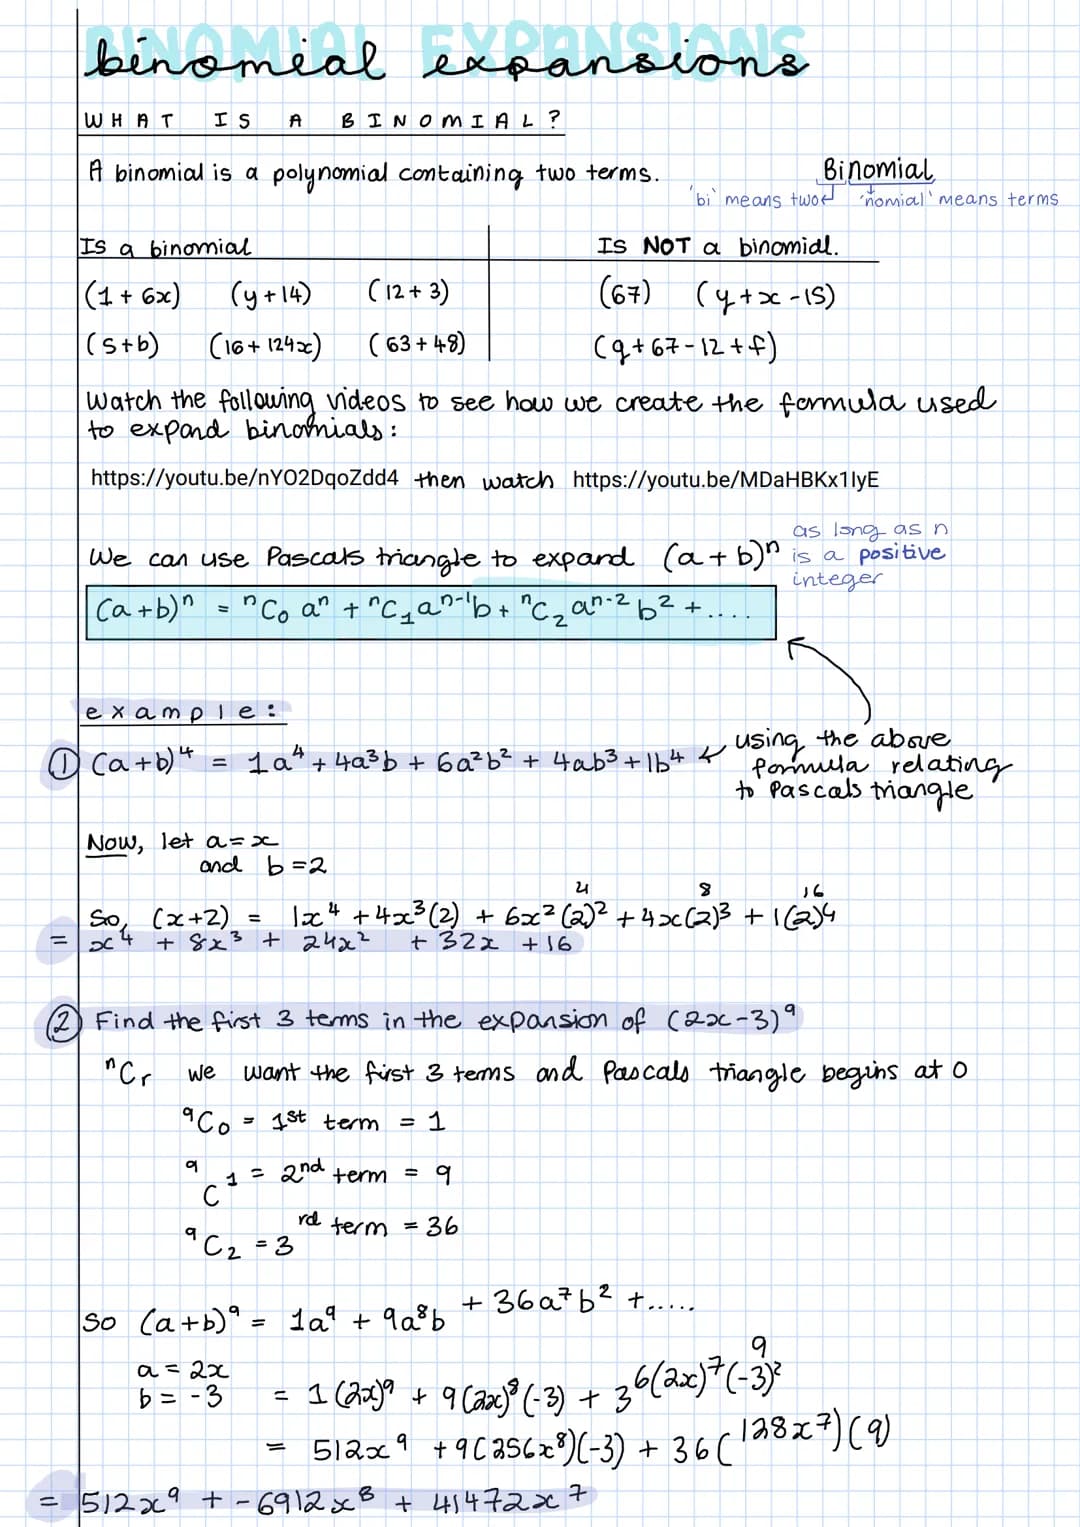 BINOMIAL EXPANSIONS
binomial expansions
WHAT IS A BINOMIAL?
A binomial is a polynomial containing two terms.
Binomial
'bi' means two 'nomial' means terms
Is a binomial
Is NOT a binomial.
(1 + 6x) (y + 14) (12 + 3)
(67) (y + x - 15)
(s + b) (16 + 124x) (63 + 48)
(q + 67 - 12 + f)
Watch the following videos to see how we create the formula used
to expand binomials:
https://youtu.be/nYO2DqoZdd4 then watch https://youtu.be/MDaHBKx1lyE
We can use Pascals triangle to expand (a + b)ⁿ
as long as n
is a positive
integer
(a + b)ⁿ = ⁿC₀ aⁿ + ⁿC₁ aⁿ⁻¹b + ⁿC₂ aⁿ⁻² b² + ....
example:
① (a + b)⁴ = 1a⁴ + 4a³b + 6a²b² + 4ab³ + 1b⁴
using the above
formula relating
to Pascals triangle
Now, let a = x
and b = 2
4 8 16
So, (x + 2) = 1x⁴ + 4x³(2) + 6x²(2)² + 4x(2)³ + 1(2)⁴
= x⁴ + 8x³ + 24x² + 32x + 16
② Find the first 3 terms in the expansion of (2x - 3)⁹
ⁿCr we want the first 3 terms and Pascals triangle begins at 0
⁹C₀ = 1st term = 1
⁹C₁ = 2nd term = 9
⁹C₂ = 3rd term = 36
So (a + b)⁹ = 1a⁹ + 9a⁸b + 36a⁷b² + .....
a = 2x
b = -3
9
= 1(2x)⁹ + 9(2x)⁸(-3) + 36(2x)⁷(-3)²
= 512x⁹ + 9(256x⁸)(-3) + 36(128x⁷)(9)
= 512x⁹ + - 6912x⁸ + 41472x⁷